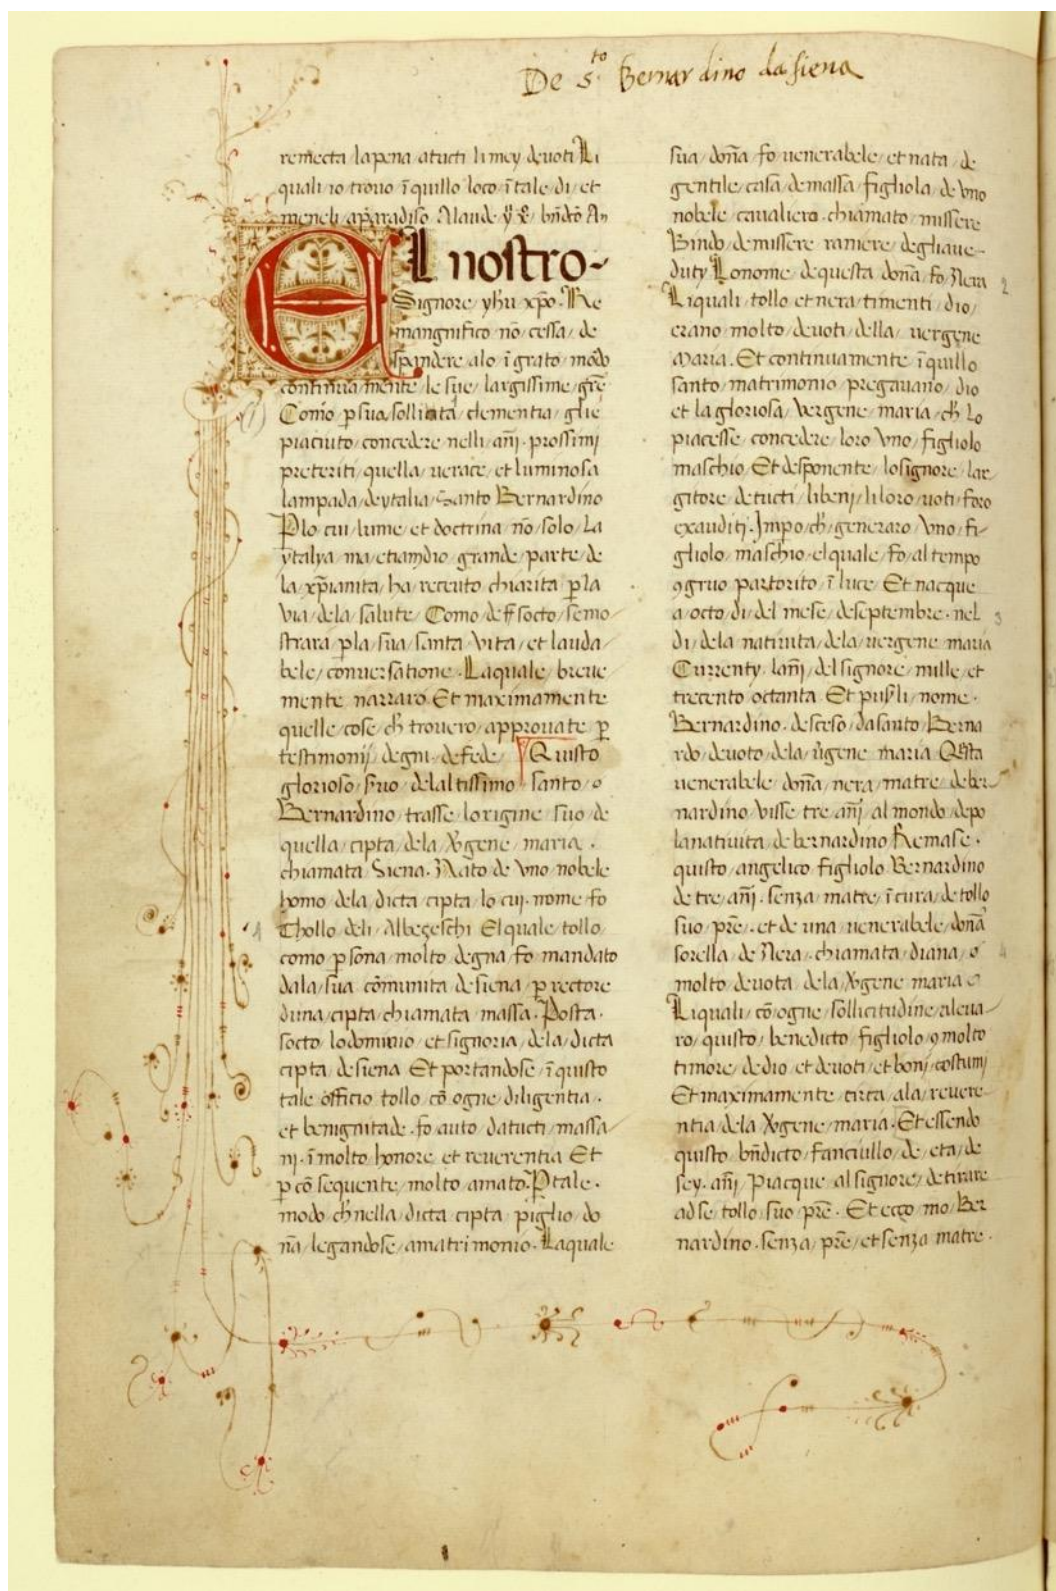 De s.to Bernardino da siena
remecta/ la pena atucti limey devoti Li
quali io trovo ī quillo loco/ ī tale di/ et
meneli
El nostro-
Signore/ yhu xp̄o. Re
mangnifico nō cessa/ de
spandere alo ī grato/ mōdo
continua mente/ le sue/ largissime/ grē
Como p̱ sua/ sollicita/ clementia/ glie
piaciuto/ concedere nelli an̄i. prossimi
preteriti/ quella/ verace/ et luminosa
lampada/ deytalia/ Santo Bernardino
P̱lo cui/ lume/ et doctrina/ nō solo/ La
ytalya/ ma etiamdio/ grande/ parte/ de
la xp̄ianita/ ha receuto chiarita/ p̱ la
via/ dela salute/ Como socto/ semo
strara/ p̱la/ sua/ santa/ vita/ et lauda/
bele/ conversatione. Laquale/ breve
mente narraro. Et maximamente
quelle/ cose/ ch̄ trovero/ approvate/ p̱
testimonij/ degni/ defede/ Quisto
glorioso/ s̄vo/ delaltissimo santo/ o
Bernardino/ trasse/ lorigine/ suo/ de
quella/ cipta/ dela v̄gene/ maria.
chiamata Siena. Nato de/ vno/ nobele
homo/ dela/ dicta/ cipta/ lo cui. nome/ fo
Thollo/ deli/ Albeçeschi El quale/ tollo/
como/ p̱sona/ molto/ degna/ fo/ mandato
dala/ sua/ cōmunita/ de siena/ p̱ rectore
duna/ cipta/ chiamata/ massa. Posta.
socto/ lodominio/ et signoria/ dela/ dicta
cipta/ de siena Et portandose/ ī quisto
tale/ officio/ tollo/ cō ogne/ diligentia.
et benignitade. fo/ auto/ datucti/ massa/
ni. ī molto/ honore/ et reverentia/ Et
p̱ cōsequente/ molto/ amato. P̱ tale.
modo/ ch̄ nella/ dicta/ cipta/ piglio/ do
n̄a/ legandose/ amatrimonio. Laquale
sua/ don̄a/ fo/ venerabele/ et nata/ de
gentile/ casa/ demassa/ figliola/ de vno
nobele/ cavaliero. chiamato/ missere
Bindo/ de missere/ raniere/ degliave-
duty Lonome/ dequesta/ don̄a/ fo/ Nera
Li quali/ tollo/ et nera/ timenti/ dio/
erano/ molto/ devoti/ della/ vergene
maria. Et continuamente/ ī quillo
santo/ matrimonio/ pregavano/ dio
et la gloriosa/ vergene/ maria/ ch̄ Lo
piacesse/ concedere/ loro/ vno/ figliolo
maschio/ Et desponente/ losignore/ lar
gitore/ detucti/ libenj/ li loro/ voti/ foro
exauditj. Imp̱o/ ch̄/ generaro/ vno/ fi-
gliolo/ maschio. elquale/ fo/ al tempo
ꝯgruo/ partorito/ ī luce/ Et nacque
a octo/ di/ del mese/ deseptembre. nel
di/ dela nativita/ dela/ vergene/ maria
Currenty/ lan̄i/ del signore/ mille/ et
trecento/ octanta/ Et nome.
Bernardino. desceso/ dasanto/ Berna
rdo/ devoto/ dela/ v̄gene/ maria Q̄sta
venerabele/ don̄a/ nera/ matre/ de ber-
nardino/ visse/ tre/ an̄i/ al mondo/ depo
lanativita/ de bernardino Remase.
quisto/ angelico/ figliolo/ Bernardino
de tre/ an̄i. senza/ matre/ ī cura/ de tollo
suo/ prē. et de/ una/ venerabele/ don̄a
sorella/ de/ Nera. chiamata/ diana/ o
molto/ devota/ dela/ v̄gene/ maria
Li quali/ cō ogne/ sollicitudine/ aleva-
ro/ quisto/ benedicto/ figliolo/ ꝯ molto
timore/ de dio/ et devoti/ et boni/ costumi
Et maximamente/ circa/ ala/ revere-
ntia/ dela/ v̄gene/ maria. Et essendo
quisto/ bn̄dicto/ fanciullo/ de/ eta/ de
sey. an̄i/ Piacque/ al signore/ detirare
ad se/ tollo/ suo/ prē. Et ecco/ mo/ Ber
nardino. senza/ prē/ et senza/ matre.